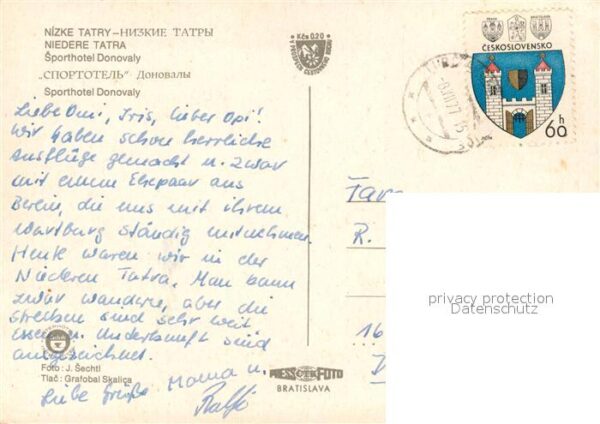 NÍZKE TATRY – НИЗКИЕ ТАТРЫ
NIEDERE TATRA
Športhotel Donovaly
„СПОРТОТЕЛЬ" Доновалы
Sporthotel Donovaly
Kčs 0,20
ČESKOSLOVENSKO
60 h
Liebe Omi, Iris, lieber Opi!
Wir haben schon herrliche
Ausflüge gemacht u. zwar
mit einem Ehepaar aus
Berlin, die uns mit ihrem
Wartburg ständig mitnehmen.
Heute waren wir in der
Niederen Tatra. Man kann
zwar wandern, aber die
Strecken sind sehr weit
Essen u. Unterkunft sind
ausgezeichnet.
Liebe Grüße Mama u.
Ralf
Foto: J. Šechtl
Tlač: Grafobal Skalica
PRESSFOTO
BRATISLAVA
Fam
R.
16
D
privacy protection
Datenschutz